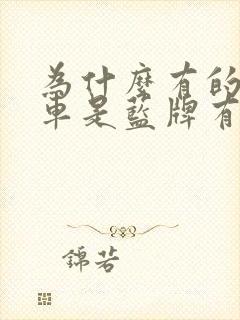 為什麼有的
車是藍牌有
錦若